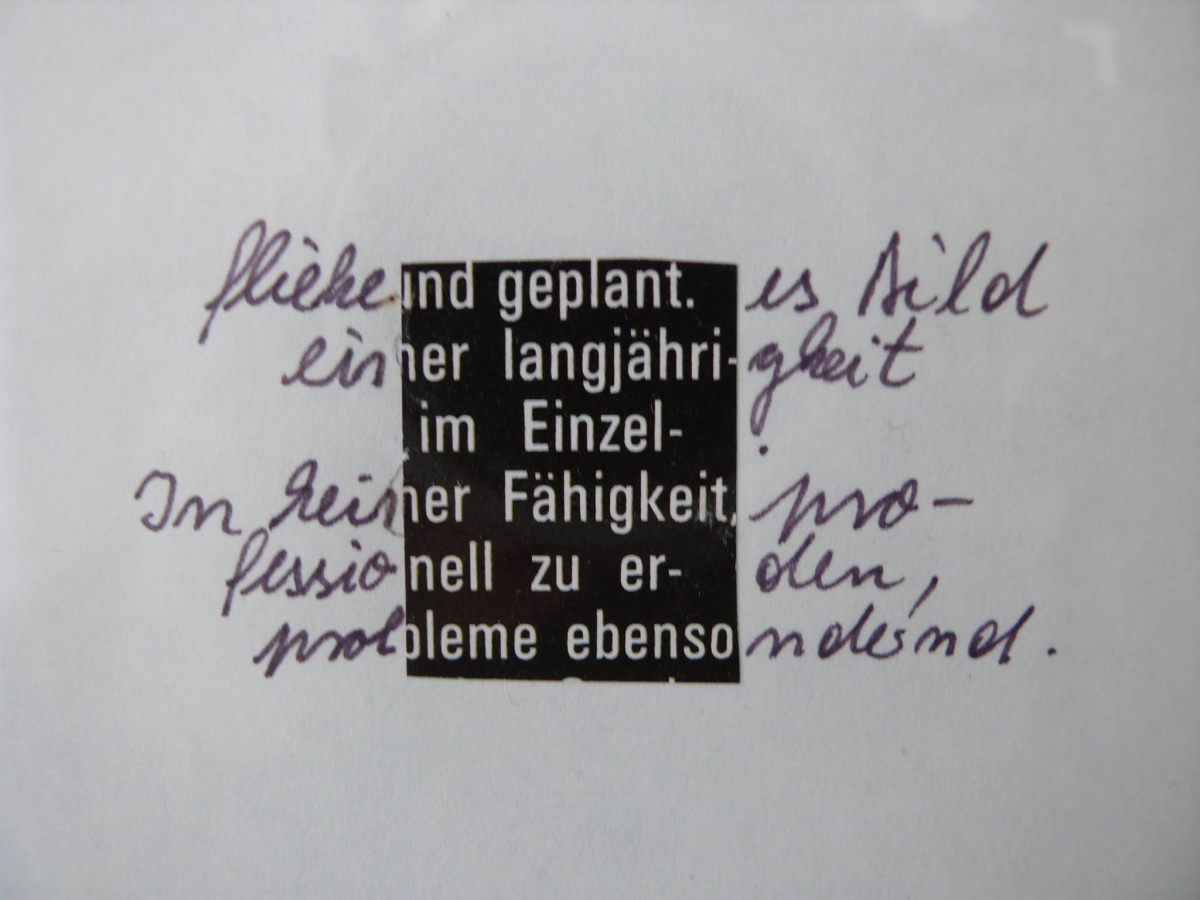 fliehend geplant. es Bild
einer langjähri-gkeit
im Einzel- .
In keiner Fähigkeit, pro-
fessionell zu er- den,
probleme ebensondernd.